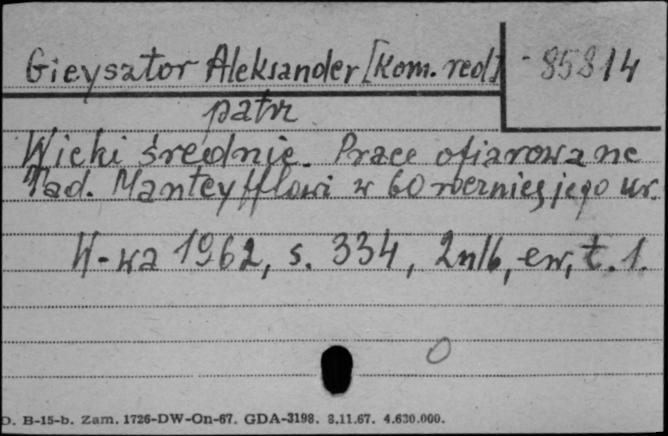 Gieysztor Aleksander [Kom. red.] 85814
patrz
Wieki średnie. Prace ofiarowane
Tad. Manteyfflowi w 60 rocznicę jego ur.
W-wa 1962, s. 334, 2nlb, err, t. 1.
D. B-15-b. Zam. 1726-DW-On-67. GDA-3198. 8.11.67. 4.630.000.